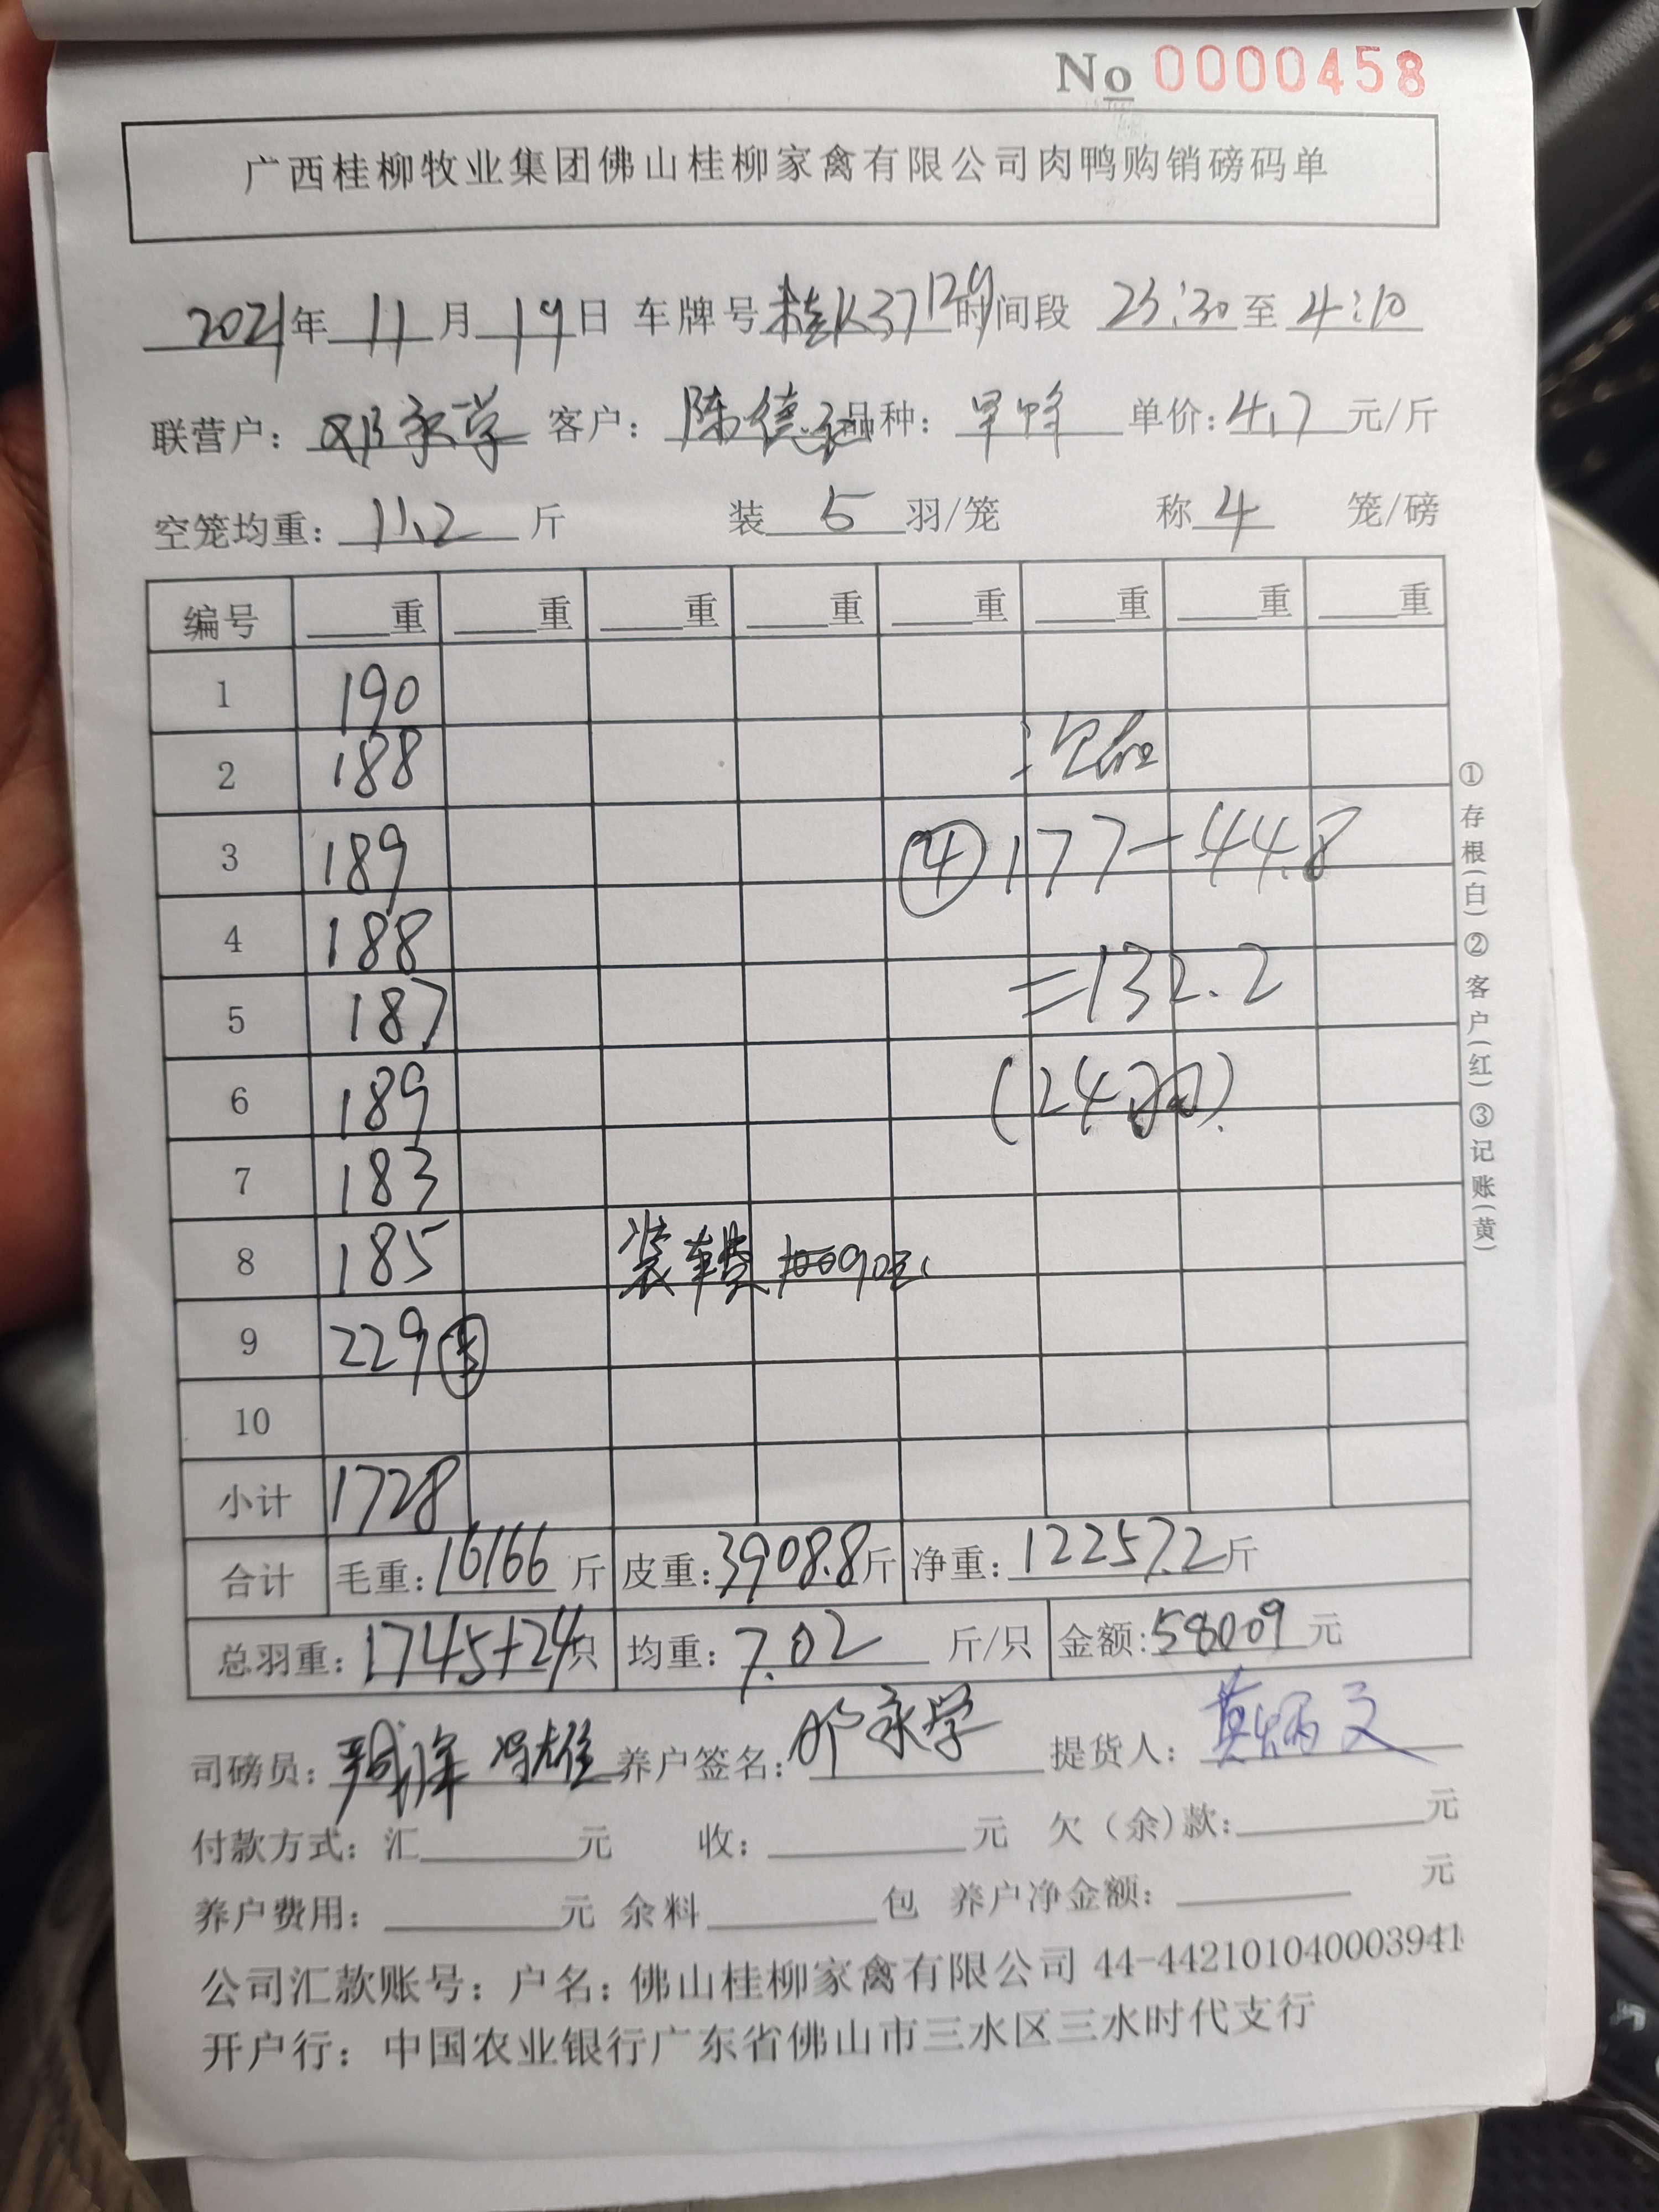 No 0000458
广西桂柳牧业集团佛山桂柳家禽有限公司肉鸭购销磅码单
2021年 11月 19日 车牌号 桂K37129 时间段 23:30 至 4:10
联营户: 邓永学 客户: 陈德 品种: 单价: 4.7 元/斤
空笼均重: 11.2 斤 装 5 羽/笼 称 4 笼/磅
编号 重 重 重 重 重 重 重 重
1 190
2 188 次品
3 189 ④ 177-44.8
4 188
5 187 =132.2
6 189 (24羽)
7 183
8 185 装车费 90元
9 229 ⑤
10
小计 1728
合计 毛重: 16166 斤 皮重: 3908.8 斤 净重: 12257.2 斤
总羽重: 1745+24 只 均重: 7.02 斤/只 金额: 58009 元
司磅员: 养户签名: 邓永学 提货人: 莫炳文
付款方式: 汇 元 收: 元 欠(余)款: 元
养户费用: 元 余料 包 养户净金额: 元
公司汇款账号: 户名: 佛山桂柳家禽有限公司 44-442101040003941
开户行: 中国农业银行广东省佛山市三水区三水时代支行
①存根(白)②客户(红)③记账(黄)